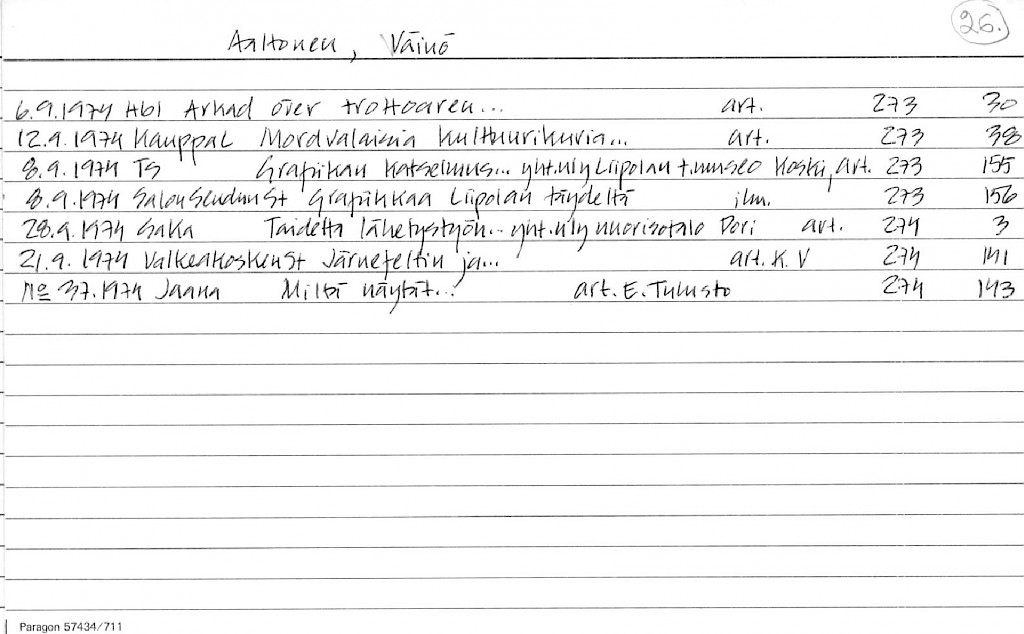 26.
Aaltonen, Väinö
6.9.1974 Hbl Arkad över trottoaren... art. 273 30
12.9.1974 Kauppal Mordvalaisia kulttuurikuvia... art. 273 38
8.9.1974 TS Grafiikan katselmus... yht.näy Liipolan t.museo Koski, art. 273 155
8.9.1974 SalonSeudunSt Grafiikkaa Liipolan täydeltä ilm. 273 156
28.9.1974 SaKa Taidetta lähetystyön... yht.näy nuorisotalo Pori art. 274 3
21.9.1974 ValkeakoskenSt Järnefeltin ja... art. K.V 274 141
No 37.1974 Jaana Miltä näytät... art. E. Tulusto 274 143
Paragon 57434/711